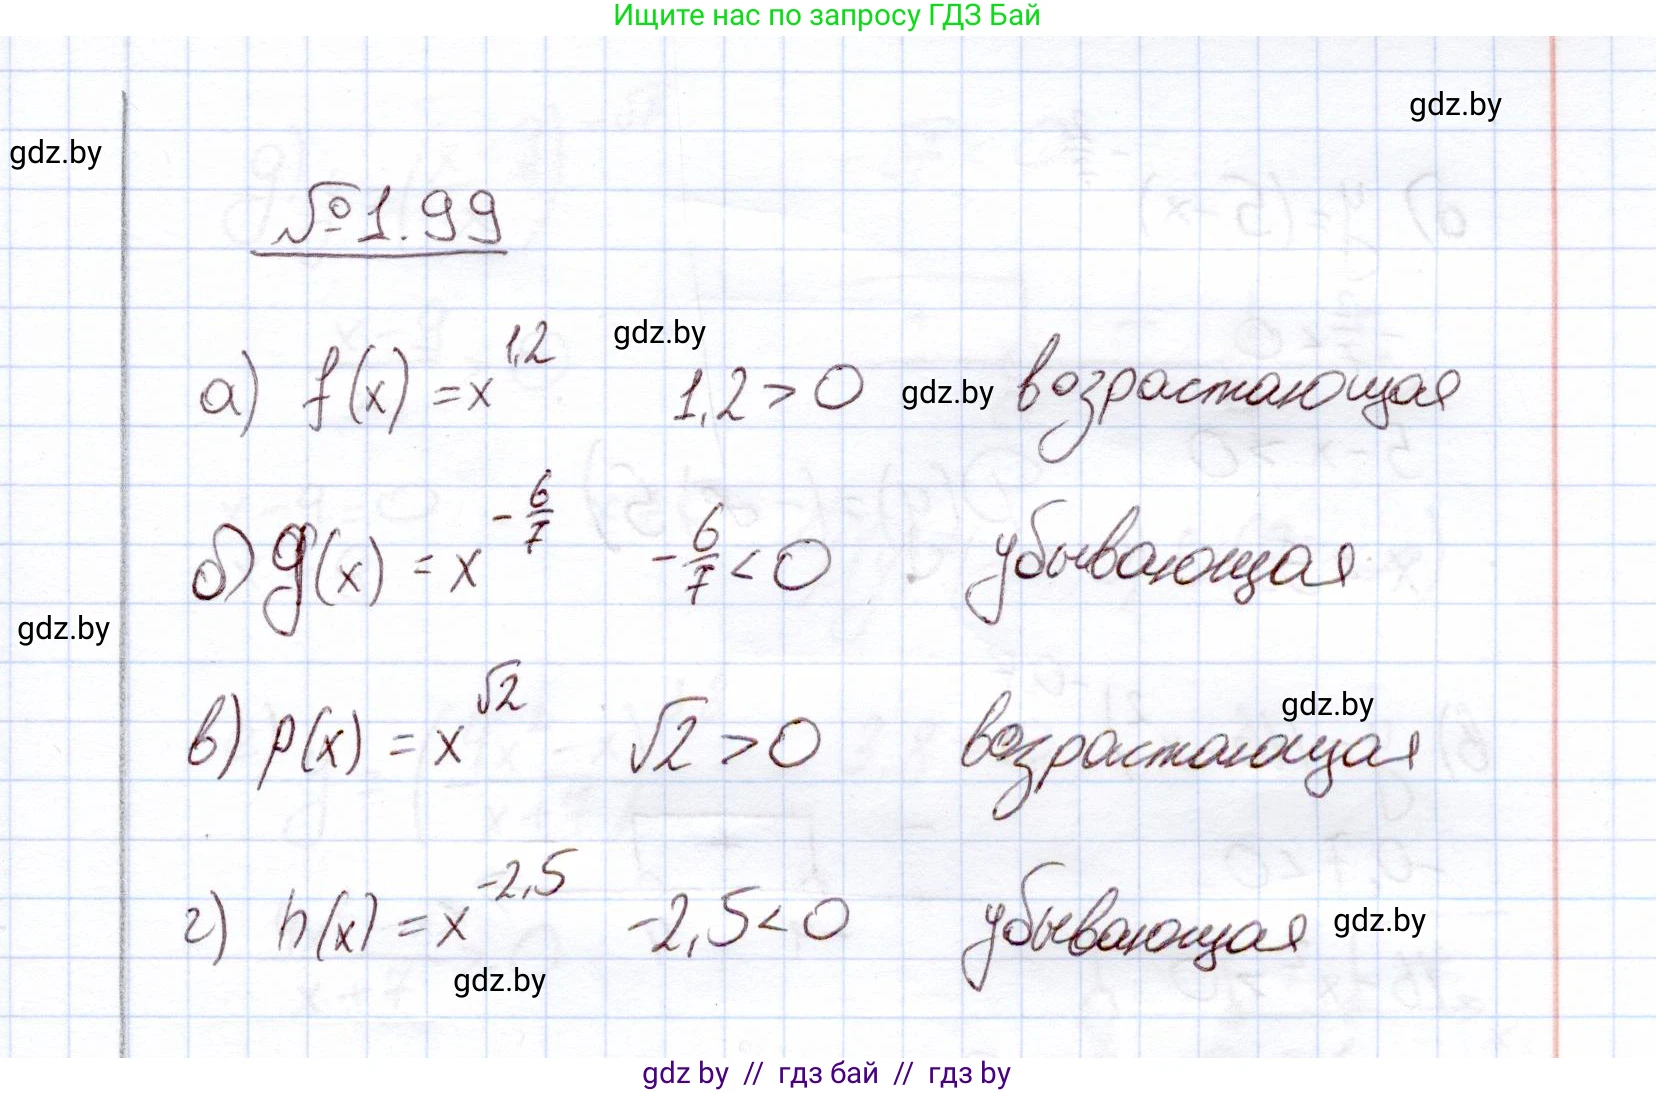 Ищите нас по запросу ГДЗ Бай
gdz.by
gdz.by
№1.99
gdz.by
а) f(x) = x^{1,2} 1,2 > 0 gdz.by возрастающая
б) g(x) = x^{-6/7} -6/7 < 0 убывающая
gdz.by
gdz.by
в) p(x) = x^{√2} √2 > 0 возрастающая
г) h(x) = x^{-2,5} -2,5 < 0 убывающая gdz.by
gdz.by
gdz by // гдз бай // гдз by